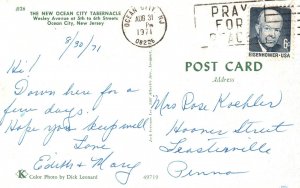 J128
THE NEW OCEAN CITY TABERNACLE
Wesley Avenue at 5th to 6th Streets
Ocean City, New Jersey
OCEAN CITY NJ
AUG 31
PM
1971
08226
PRAY
FOR
PEACE
EISENHOWER·USA
6¢
8/30/71
Hi!
Down here for a
few days.
Hope you keep well
Love
Edith & Mary
POST CARD
Address
Mrs Rose Koehler
Hoover Street
Feasterville
Penna
K Color Photo by Dick Leonard
69719